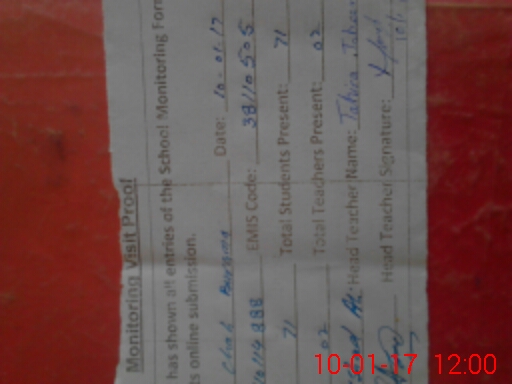 Monitoring Visit Proof
has shown all entries of the School Monitoring Form
s online submission.
Chak Date: 10-01-17
EMIS Code: 38110505
71 Total Students Present: 71
02 Total Teachers Present: 02
Head Teacher Name: Tahira
Head Teacher Signature:
10-01-17 12:00